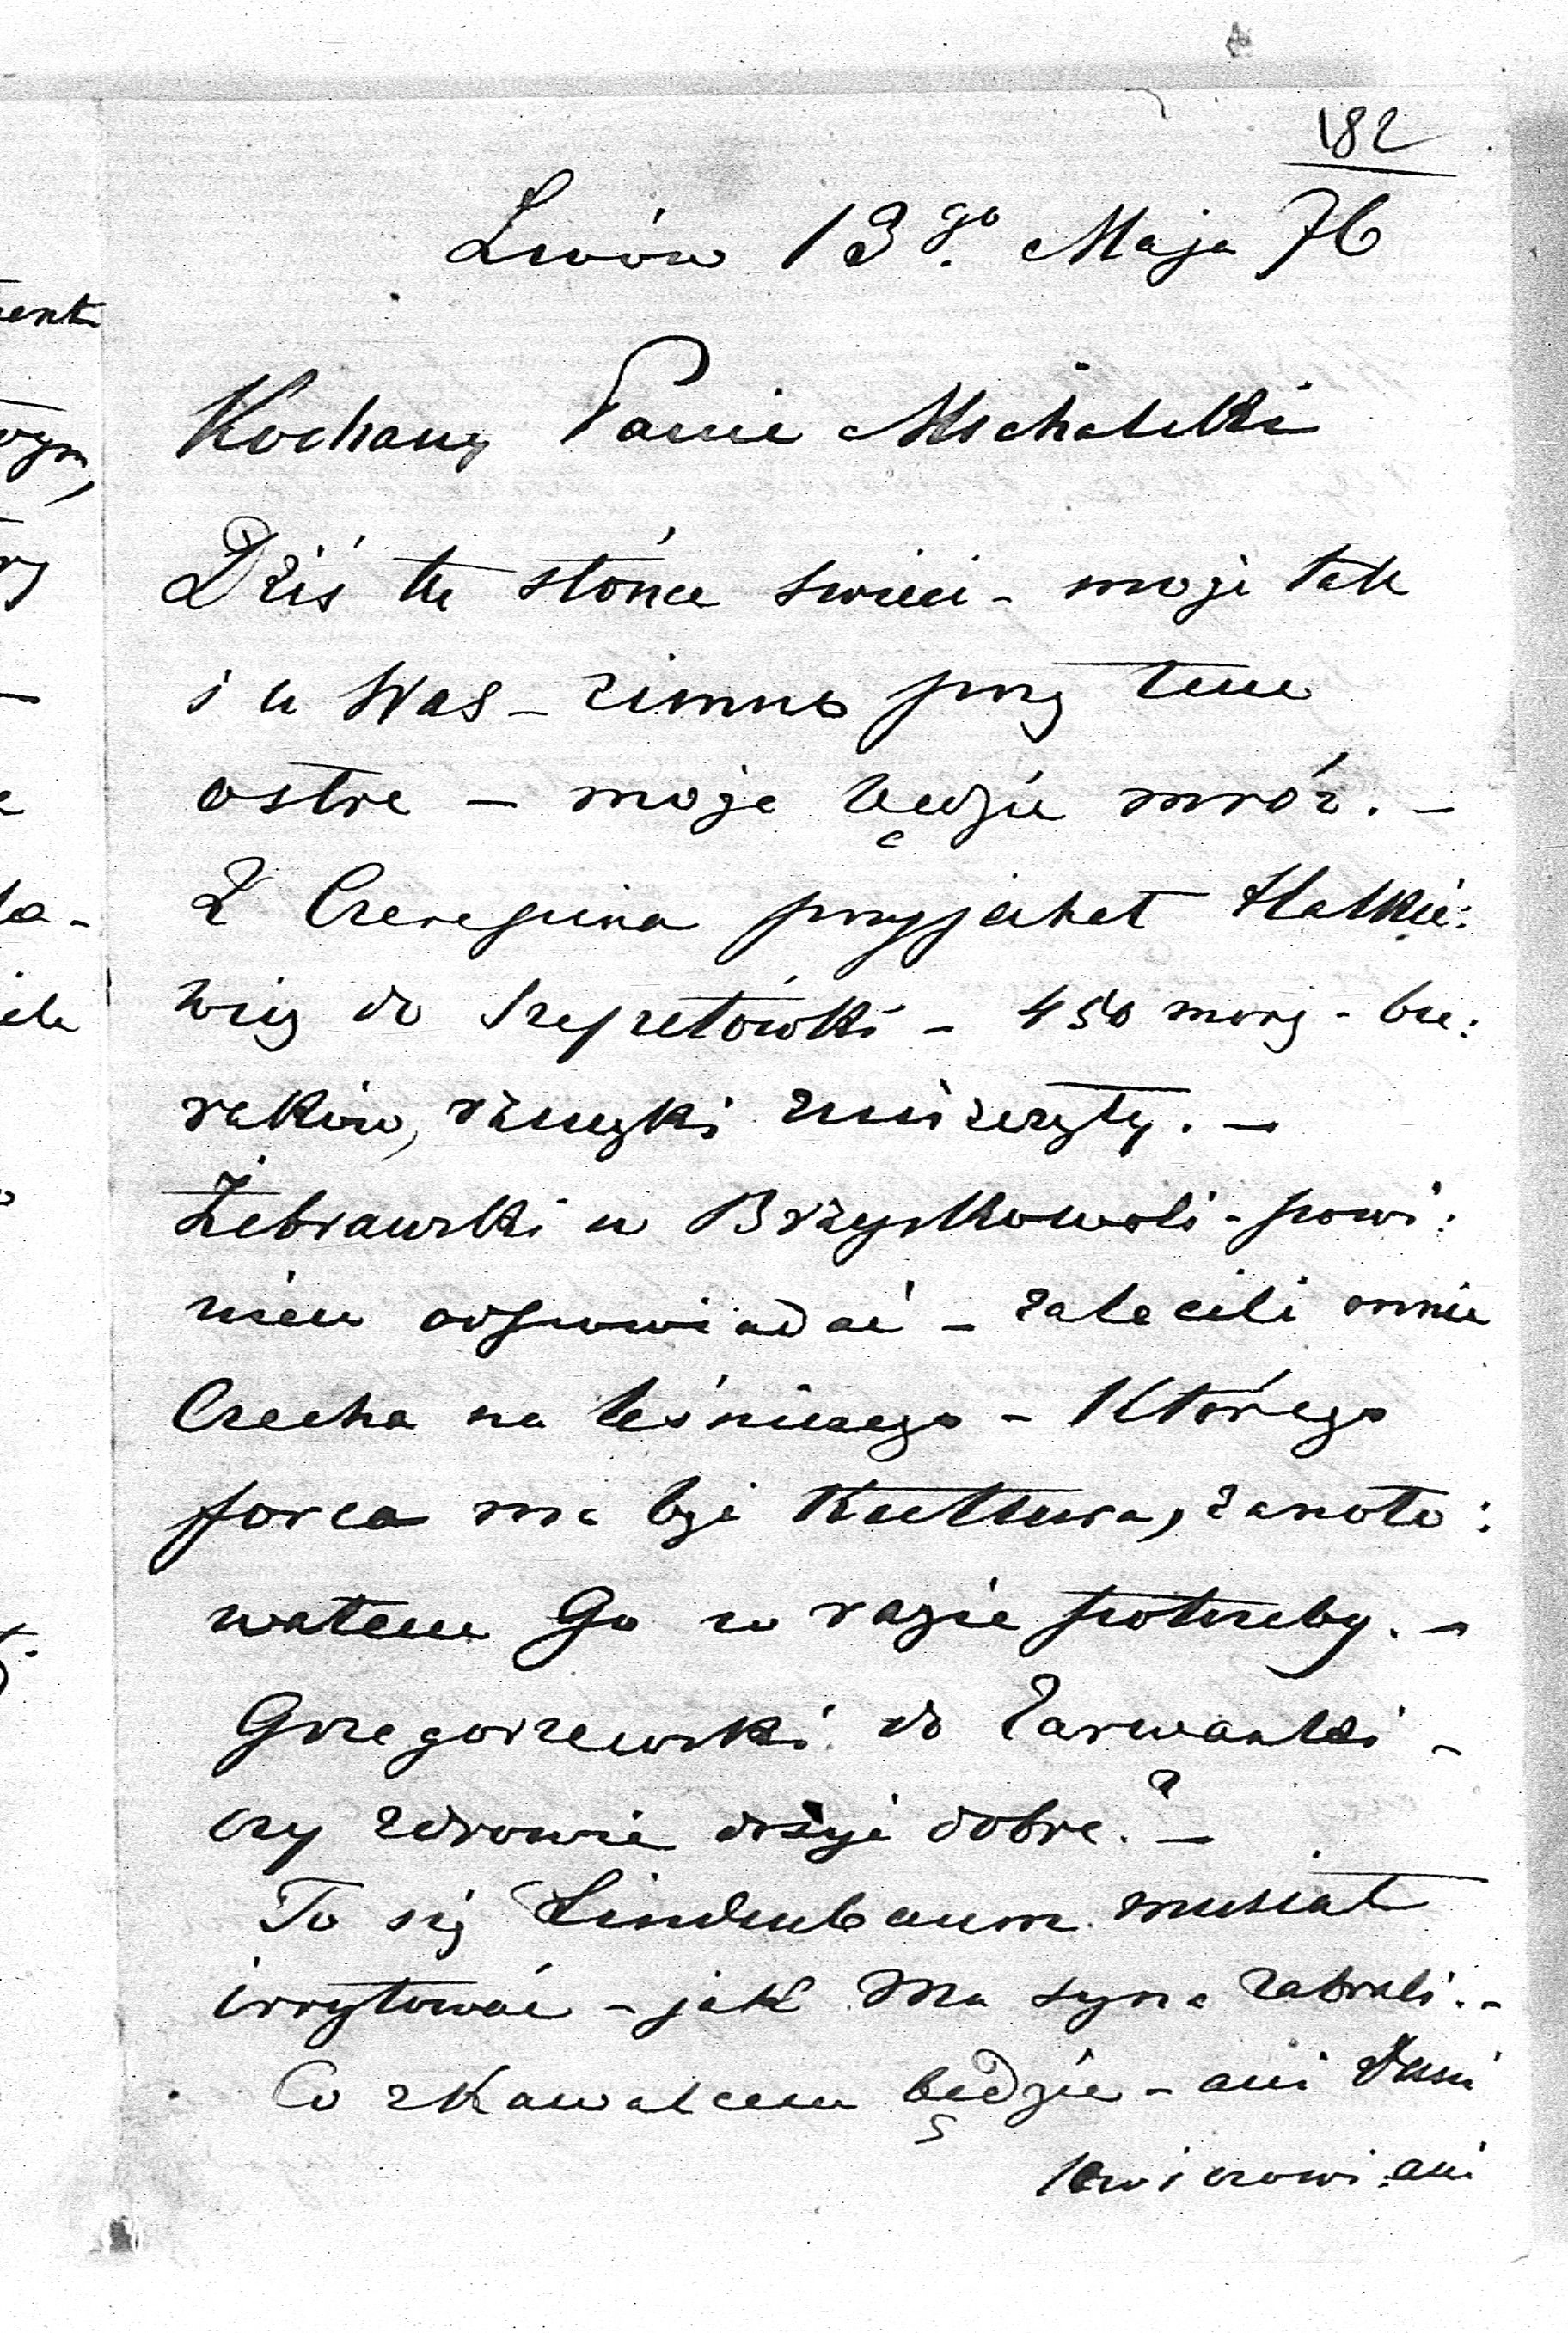 182
Lwów 13go. Maja 76
Kochany Panie Michalski
Dziś tu słońce swieci - może tak
i u Was - zimno przy tem
ostre - może będzie mróz. -
Z Czerepina przyjechał Halkie:
wicz do Szeptówki - 450 morg - bu:
raków, rzuczki zniszczyły. -
Żebrawski w Brzyskowoli - powi:
nien odpowiadać - zalecili mnie
Czecha na leśniczego - którego
forca ma być Kultura, zanoto:
wałem Go w razie potrzeby. -
Grzegorzewski do Zarwanki -
czy zdrowie dosyć dobre? -
To się Lindenbaum musiał
irrytować - jak Mu syna zabrali. -
Co z Kawalcem będzie - ani
ani